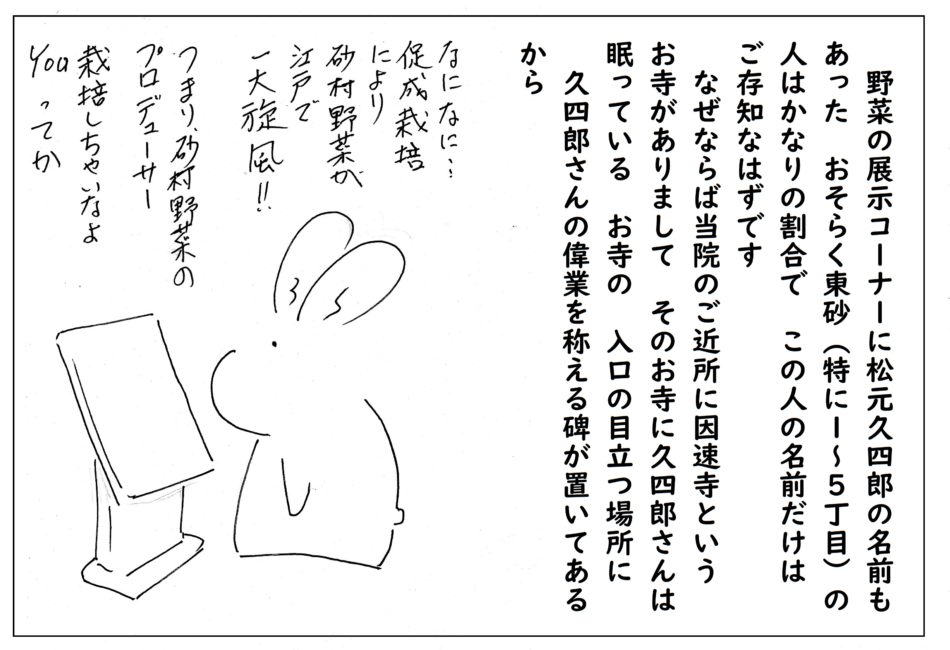 野菜の展示コーナーに松元久四郎の名前も
あった　おそらく東砂（特に１～５丁目）の
人はかなりの割合で　この人の名前だけは
ご存知なはずです
なぜならば当院のご近所に因速寺という
お寺がありまして　そのお寺に久四郎さんは
眠っている　お寺の　入口の目立つ場所に
久四郎さんの偉業を称える碑が置いてある
から
なになに…
促成栽培
により
砂村野菜が
江戸で
一大旋風!!
つまり、砂村野菜の
プロデューサー
栽培しちゃいなよ
Youってか